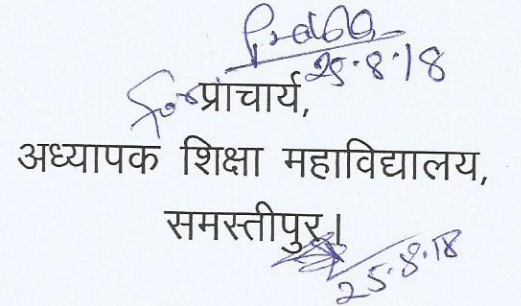 25.8.18
For प्राचार्य,
अध्यापक शिक्षा महाविद्यालय,
समस्तीपुर।
25.8.18